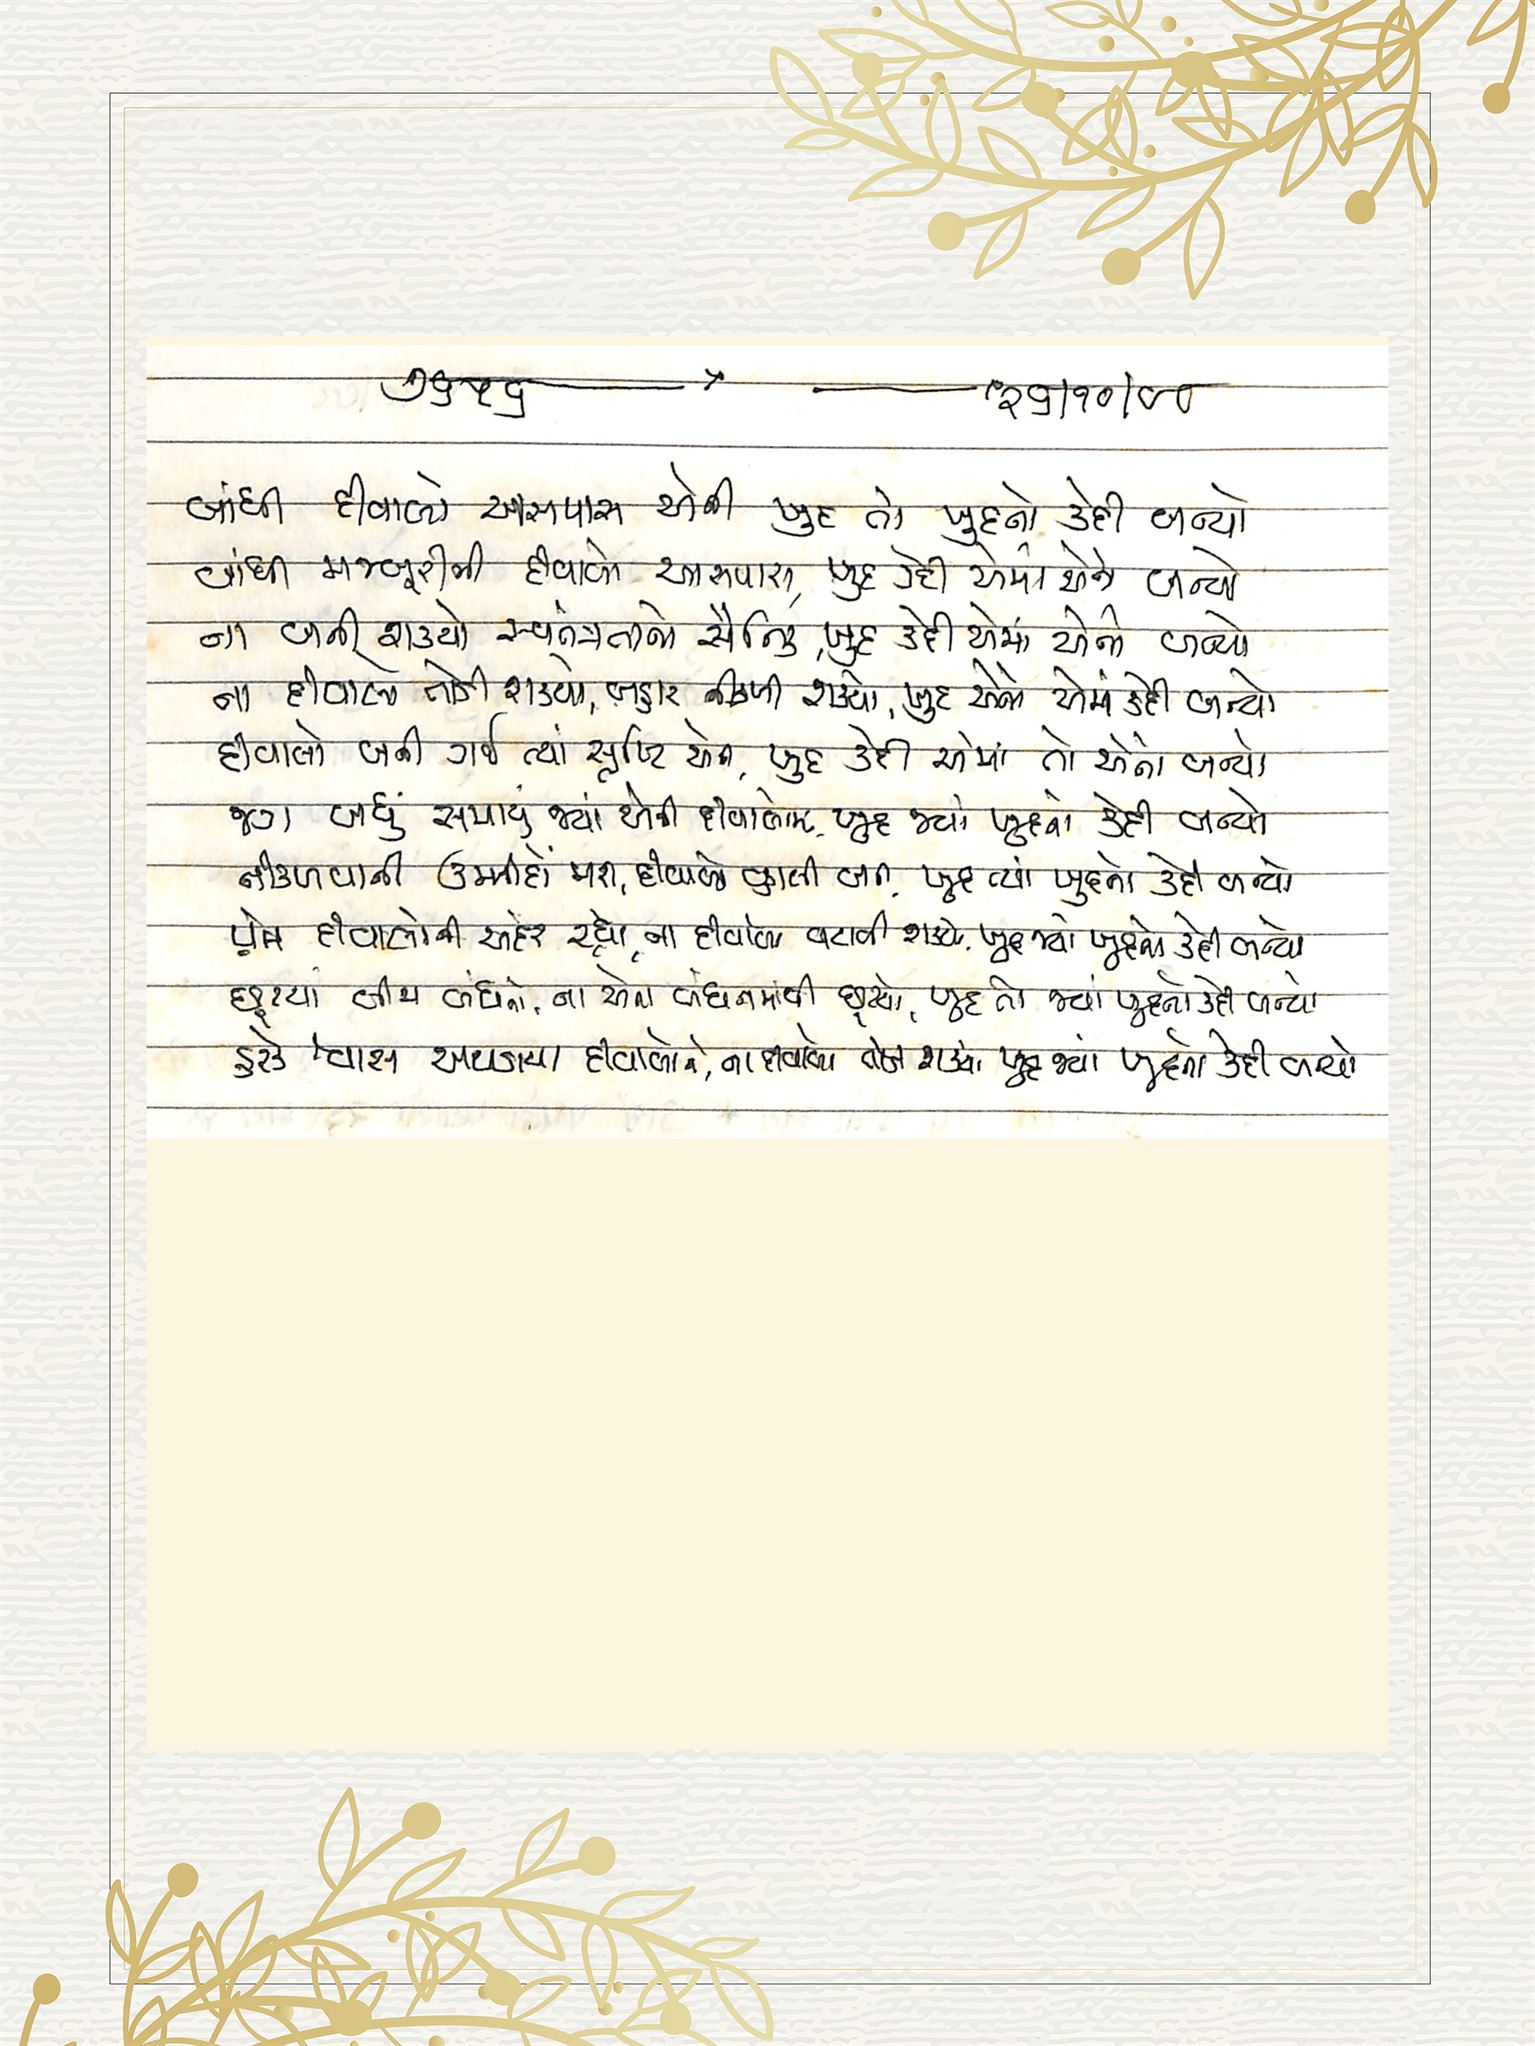 બાંધી દીવાલો આસપાસ એની ખુદ તો ખુદનો કેદી બન્યો
બાંધી મજબૂરીની દીવાલો આસપાસ, ખુદ કેદી એમાં એનો બન્યો
ના બની શક્યો સ્વતંત્રતાનો સૈનિક, ખુદ કેદી એમાં એનો બન્યો
ના દીવાલો તોડી શક્યો, બહાર નીકળી શક્યો, ખુદ એનો એમાં કેદી બન્યો
દીવાલો બની ગઈ ત્યાં સૃષ્ટિ એની, ખુદ કેદી એમાં તો એનો બન્યો
બધું સમાયું જ્યાં એની દીવાલોમાં, ખુદ જ્યાં ખુદનો કેદી બન્યો
નીકળવાની ઉમ્મીદો મરી, દીવાલો બની, ખુદ ત્યાં ખુદનો કેદી બન્યો
પ્રેમ દીવાલોની અંદર રહ્યો, ના દીવાલ વટાવી શક્યો, ખુદ જ્યાં ખુદનો કેદી બન્યો
છૂટયાં બીજા બંધનો, ના એના બંધનમાંથી છૂટયો, ખુદ તો જ્યાં ખુદનો કેદી બન્યો
હરેક શ્વાસ અથડાયા દીવાલોને, ના દીવાલો તોડી શક્યો ખુદ જ્યાં ખુદનો કેદી બન્યો